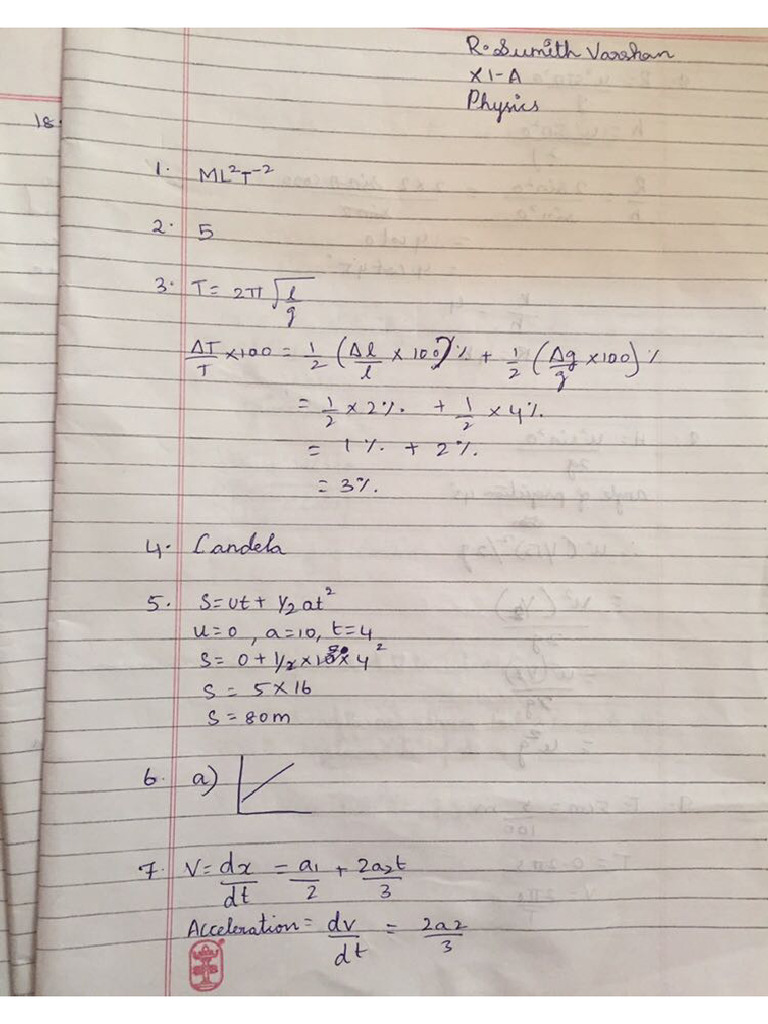 R. Sumith Varshan
XI-A
Physics
18.
1. ML²T⁻²
2. 5
3. T = 2π√(l/g)
ΔT/T ×100 = 1/2 (Δl/l × 100)% + 1/2 (Δg/g ×100)%
= 1/2 × 2% + 1/2 × 4%
= 1% + 2%
= 3%.
4. Candela
5. S=ut + 1/2 at²
u=0, a=10, t=4
S= 0+1/2×10×4²
S = 5×16
S = 80m
6. a)
7. V= dx/dt = a1/2 + 2a2t/3
Acceleration = dv/dt = 2a2/3